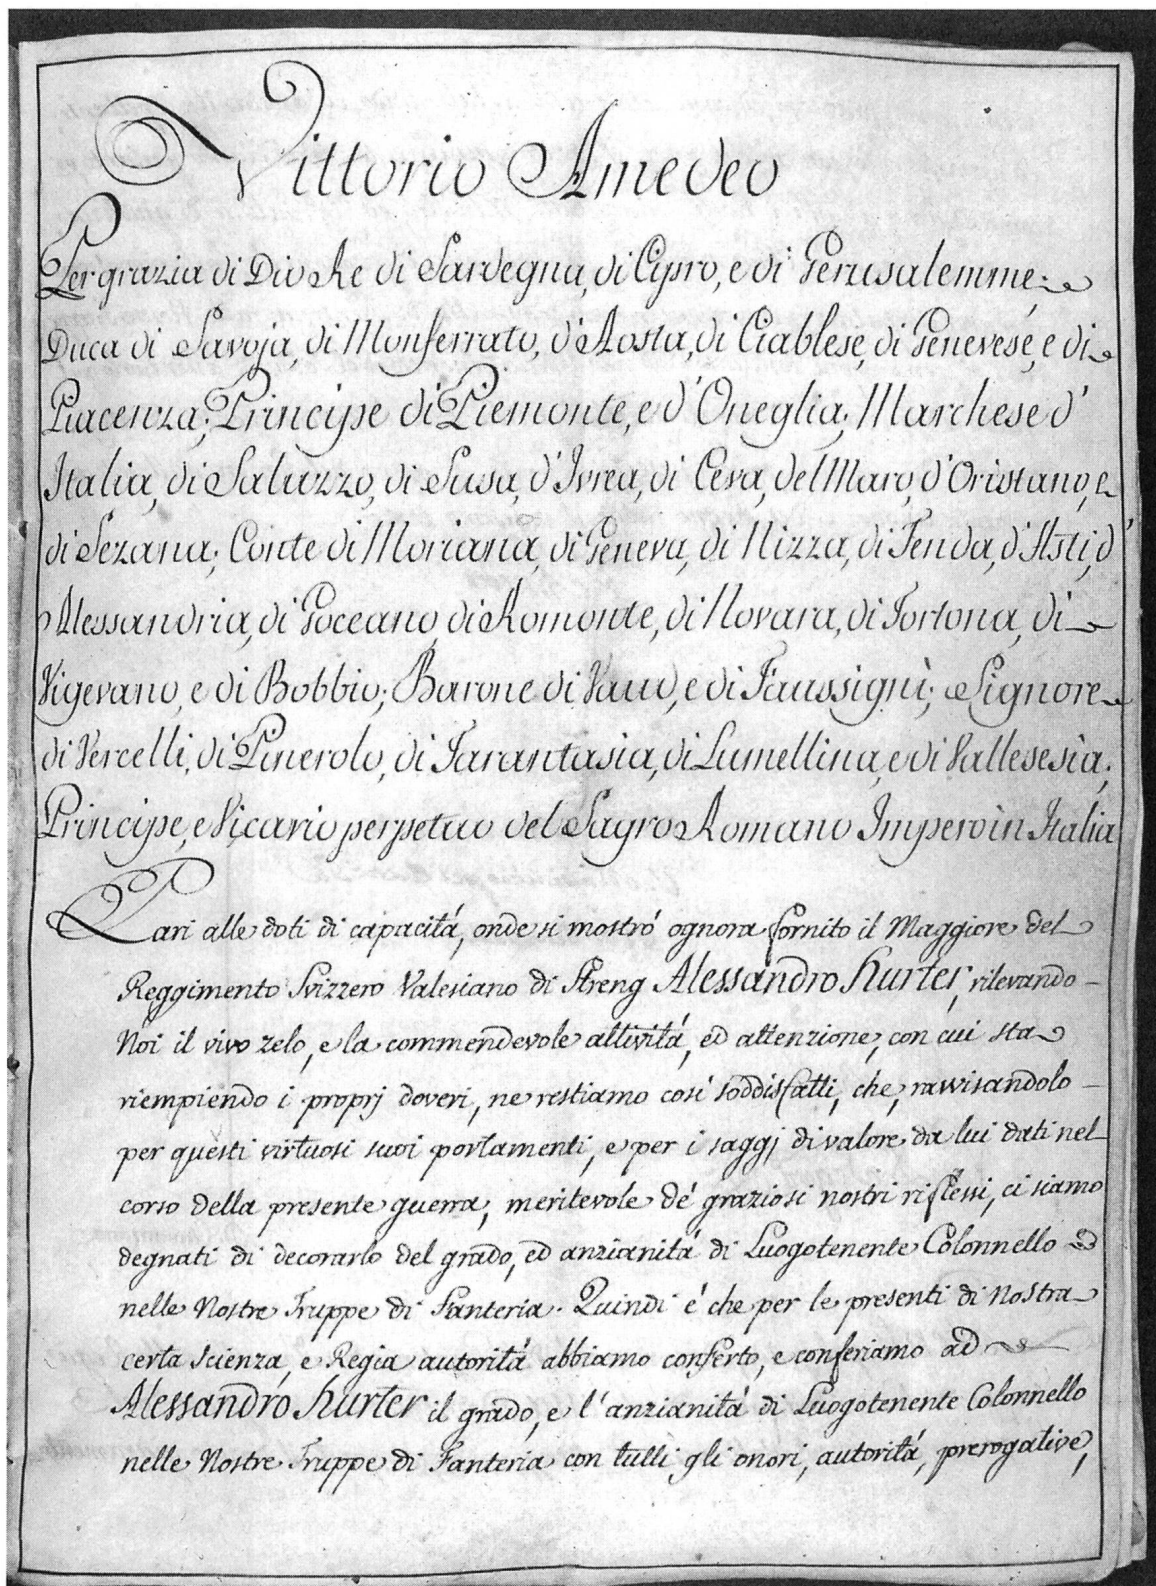 Vittorio Amedeo
Per grazia di Dio Re di Sardegna, di Cipro, e di Gerusalemme;
Duca di Savoja, di Monferrato, d'Aosta, di Ciablese, di Genevese, e di
Piacenza; Principe di Piemonte, e d'Oneglia; Marchese d'
Italia, di Saluzzo, di Susa, d'Ivrea, di Ceva, del Maro, d'Oristano, e
di Sezana; Conte di Moriana, di Geneva, di Nizza, di Tenda, d'Asti, d'
Alessandria, di Goceano, di Romonte, di Novara, di Tortona, di
Vigevano, e di Bobbio; Barone di Vaud, e di Faussignì; Signore
di Vercelli, di Pinerolo, di Tarantasia, di Lumellina, e di Vallesesia;
Principe, e Vicario perpetuo del Sagro Romano Impero in Italia
Pari alle doti di capacitá, onde si mostró ognora fornito il Maggiore del
Reggimento Svizzero Valesiano di Streng Alessandro Kurter, rilevando
Noi il vivo zelo, e la commendevole attivitá, ed attenzione, con cui sta
riempiendo i proprj doveri, ne restiamo cosí soddisfatti, che, ravvisandolo
per questi virtuosi suoi portamenti, e per i saggj di valore da lui dati nel
corso della presente guerra, meritevole de' graziosi nostri riflessi, ci siamo
degnati di decorarlo del grado, ed anzianitá di Luogotenente Colonnello
nelle Nostre Truppe di Fanteria. Quindi é che per le presenti di Nostra
certa Scienza, e Regia autoritá abbiamo conferto, e conferiamo ad
Alessandro Kurter il grado, e l'anzianitá di Luogotenente Colonnello
nelle Nostre Truppe di Fanteria con tutti gli onori, autoritá, prerogative,